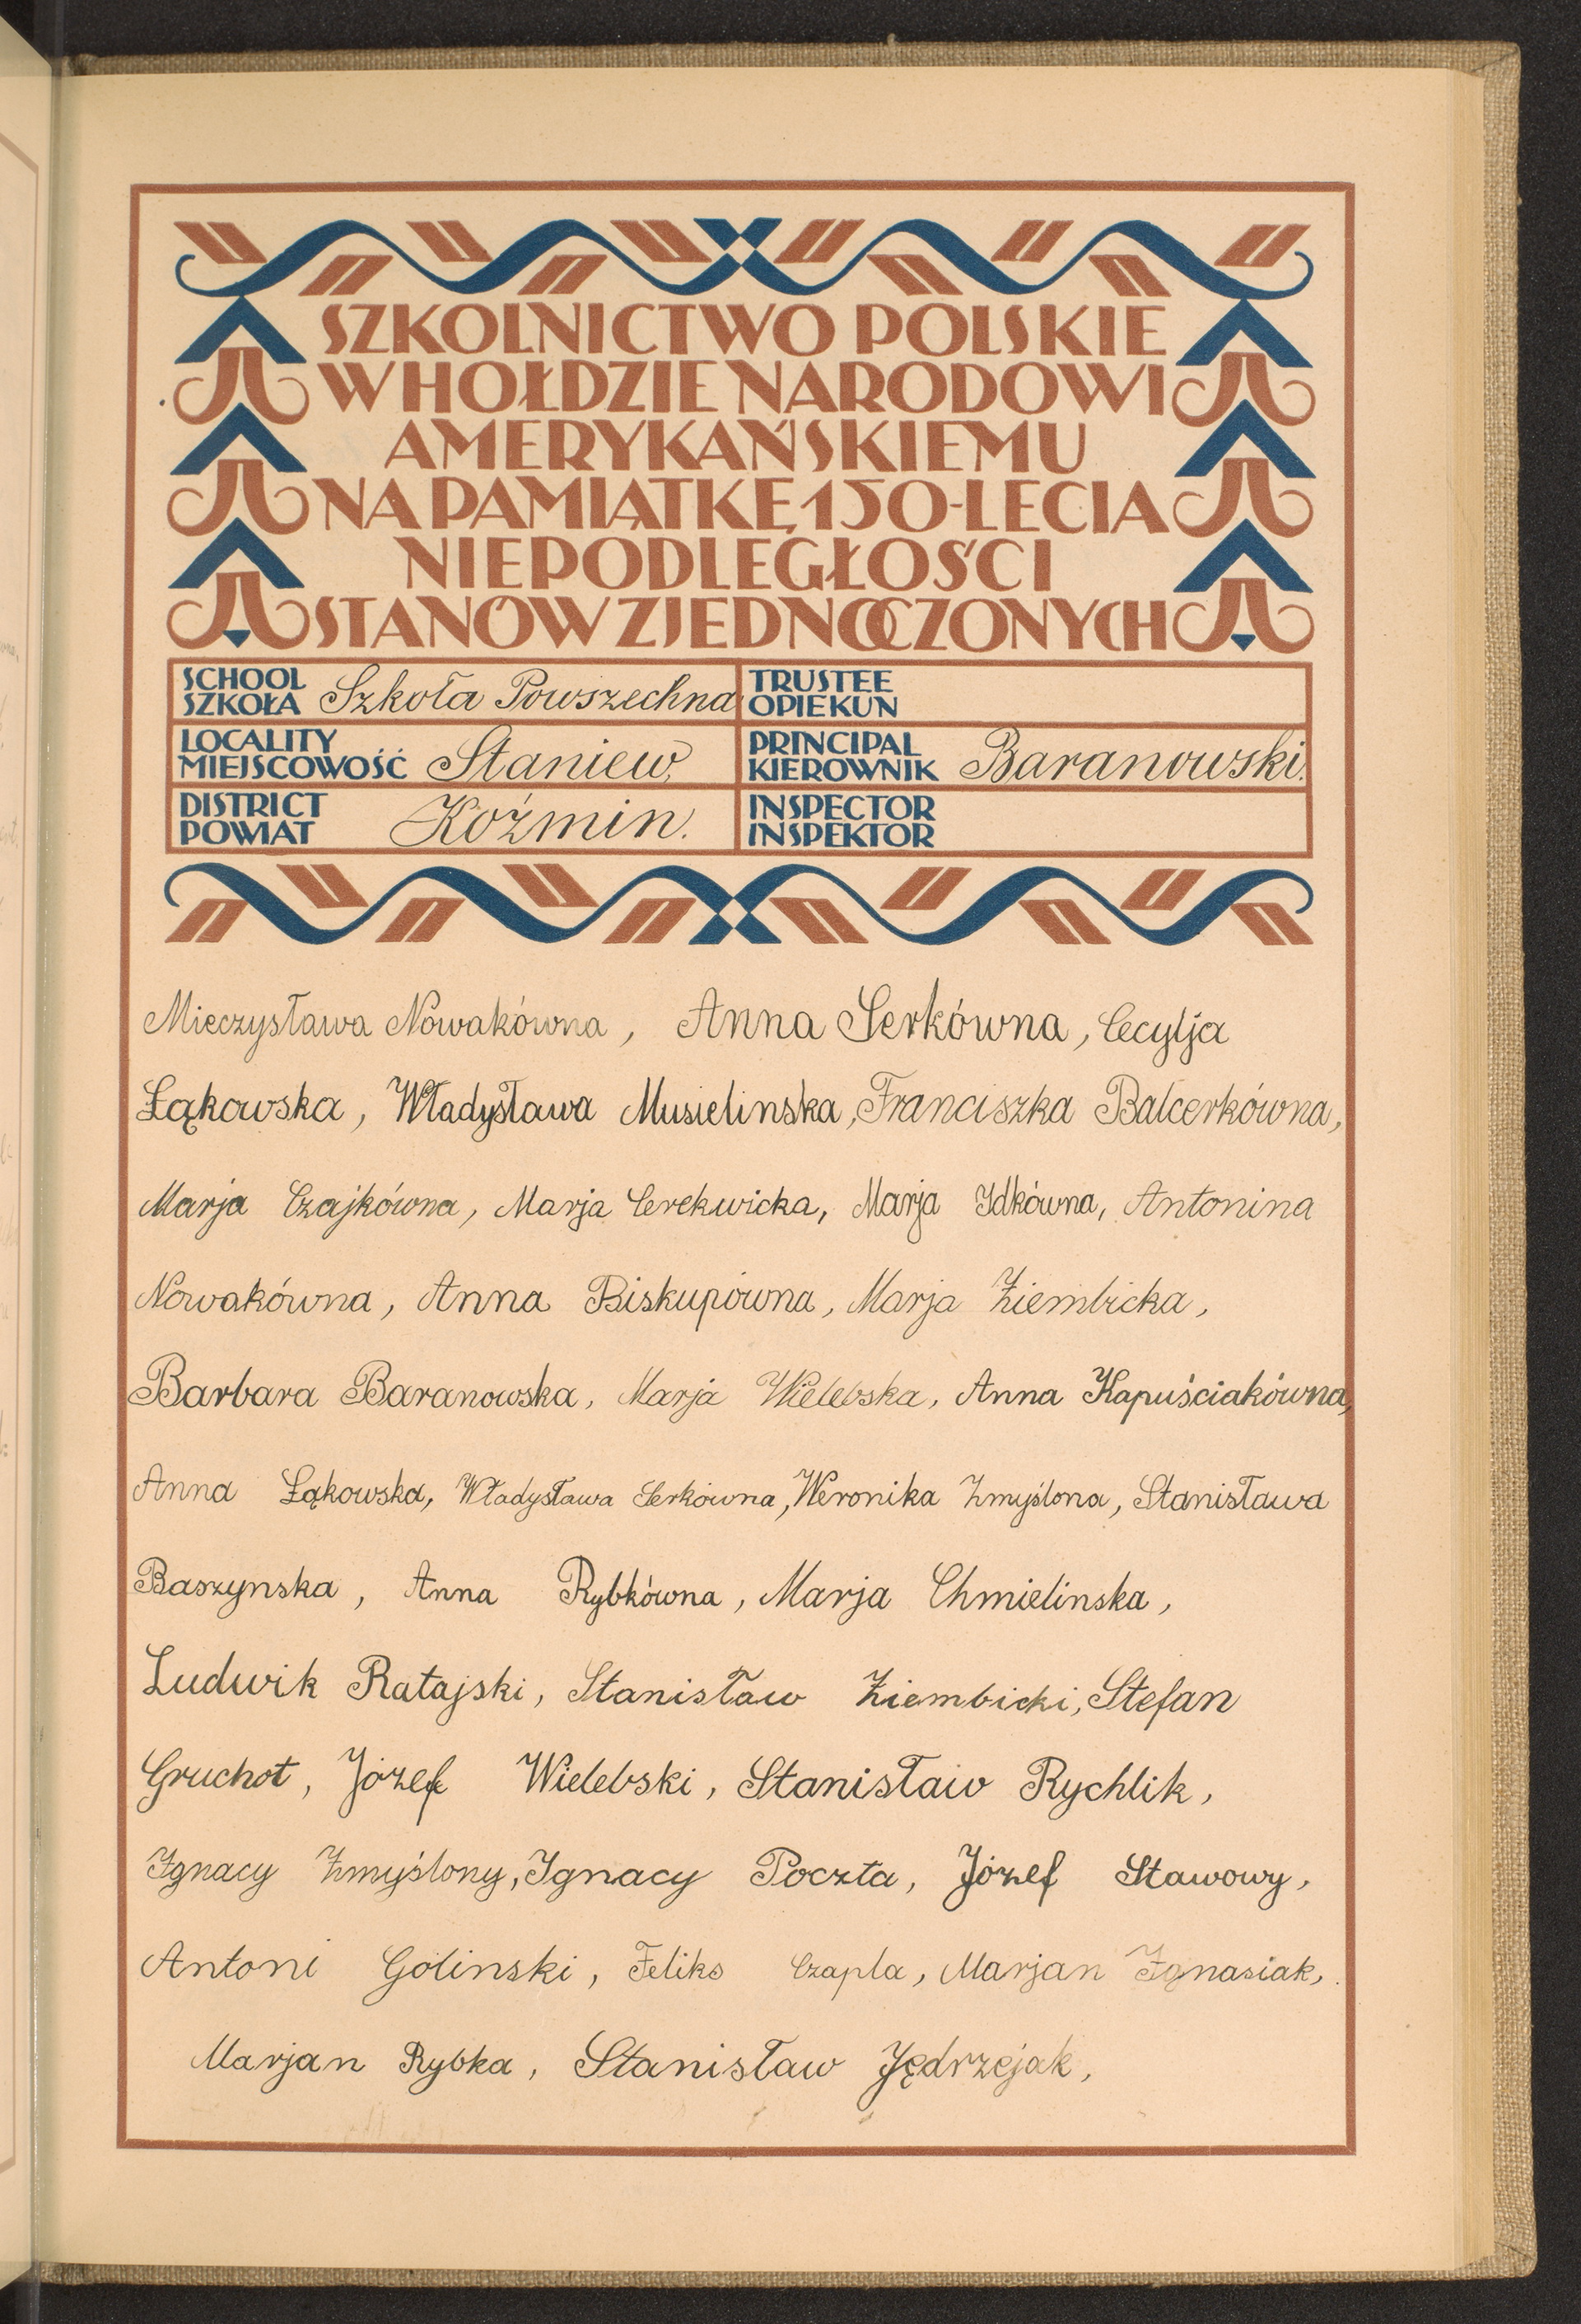 SZKOLNICTWO POLSKIE
W HOŁDZIE NARODOWI
AMERYKAŃSKIEMU
NA PAMIĄTKĘ 150-LECIA
NIEPODLEGŁOŚCI
STANÓW ZJEDNOCZONYCH
SCHOOL
SZKOŁA Szkoła Powszechna
TRUSTEE
OPIEKUN
LOCALITY
MIEJSCOWOŚĆ Staniew
PRINCIPAL
KIEROWNIK Baranowski.
DISTRICT
POWIAT Koźmin.
INSPECTOR
INSPEKTOR
Mieczysława Nowakówna, Anna Serkówna, Cecylja
Łąkowska, Władysława Musielinska, Franciszka Balcerkówna,
Marja Czajkówna, Marja Cerekwicka, Marja Idkówna, Antonina
Nowakówna, Anna Biskupówna, Marja Ziembicka,
Barbara Baranowska, Marja Wielebska, Anna Kapuściakówna,
Anna Łąkowska, Władysława Serkówna, Weronika Zmyślona, Stanisława
Baszynska, Anna Rybkówna, Marja Chmielinska,
Ludwik Ratajski, Stanisław Ziembicki, Stefan
Gruchot, Józef Wielebski, Stanisław Rychlik,
Ignacy Zmyślony, Ignacy Poczta, Józef Stawowy,
Antoni Golinski, Feliks Czapla, Marjan Ignasiak,
Marjan Rybka, Stanisław Jędrzejak,